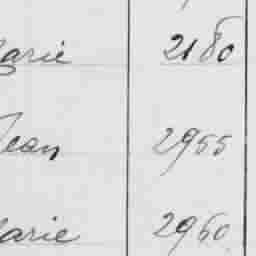 Marie 2180
Jean 2955
Marie 2960